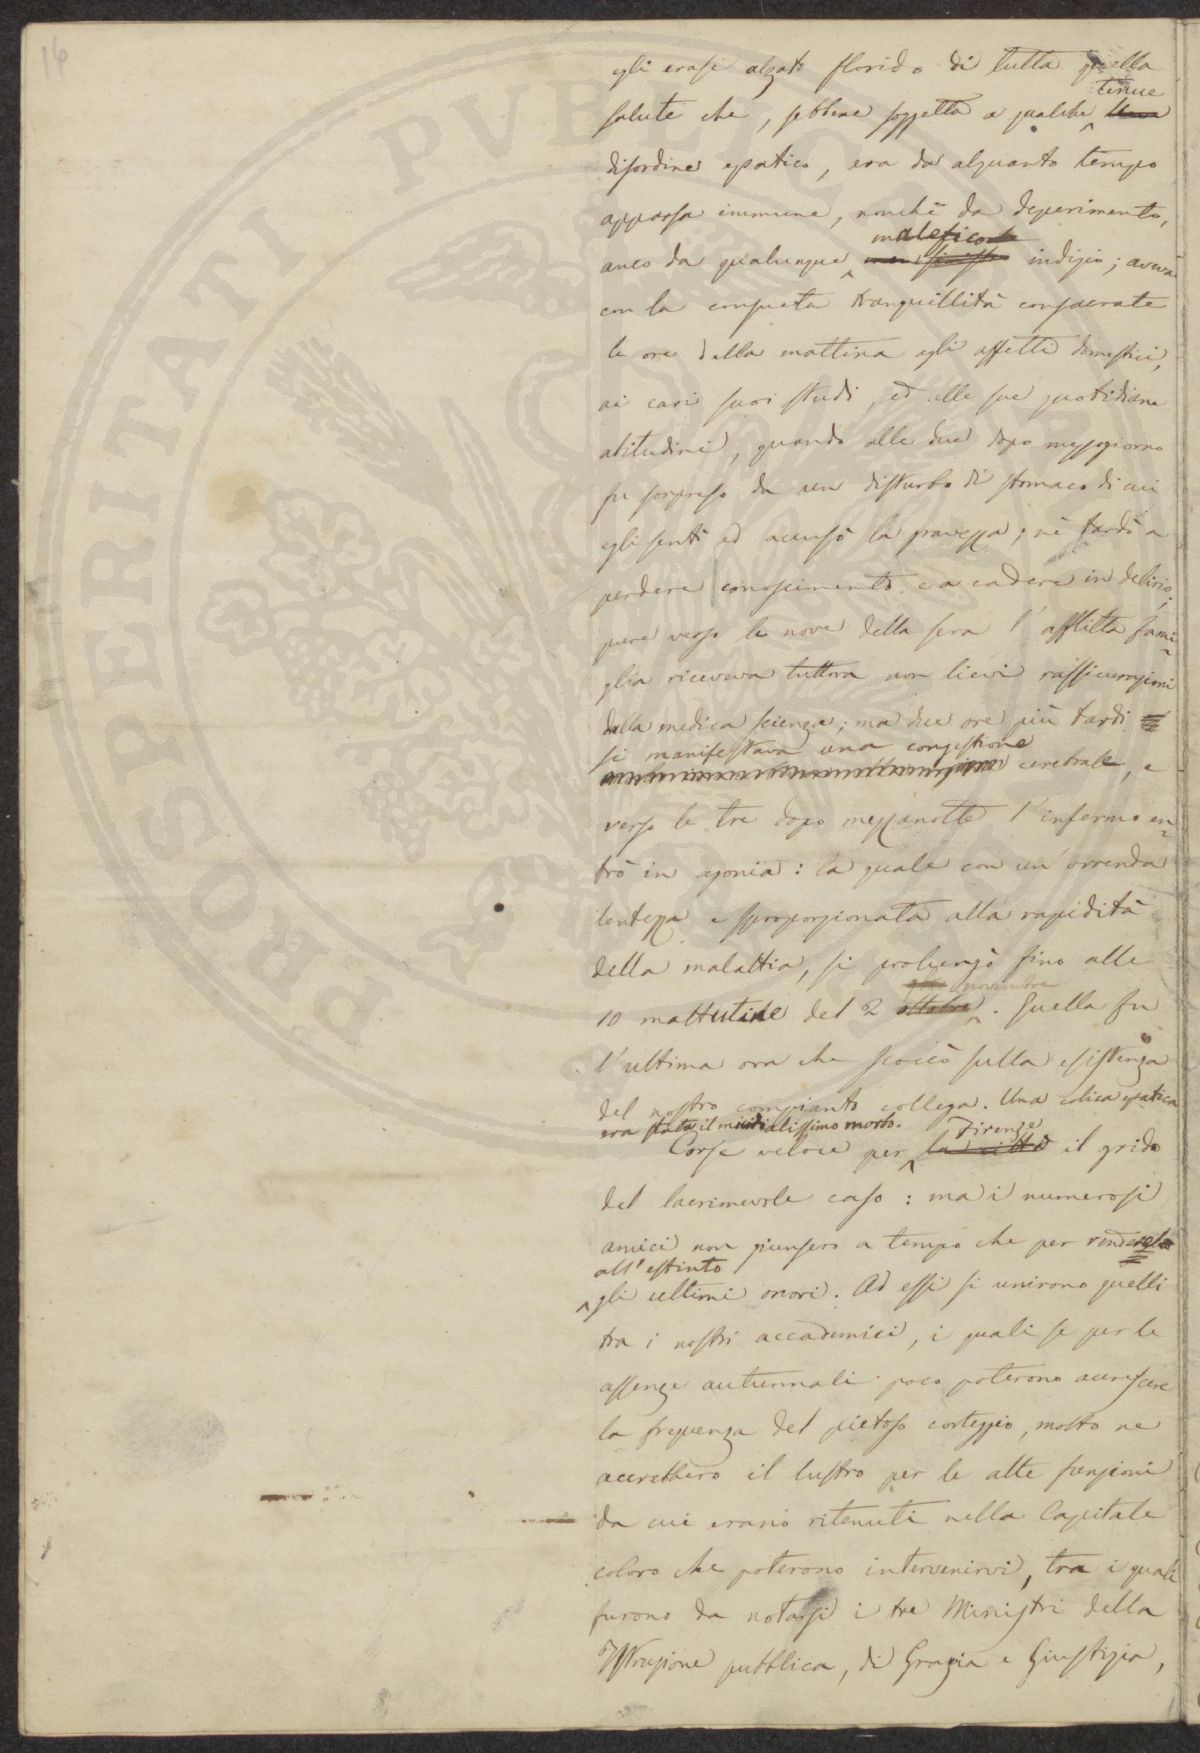 16
egli erasi alzato florido di tutta quella
tenue
salute che, sebbene soggetta a qualche
disordine epatico, era da alquanto tempo
apparsa immune, nonchè da deperimento,
malefico
anco da qualunque indizio; aveva
con la consueta tranquillità consacrate
le ore della mattina agli affetti domestici,
ai cari suoi studi, ed alle sue quotidiane
abitudini, quando alle due dopo mezzogiorno
fu sorpreso da un disturbo di stomaco di cui
egli sentì ed accusò la gravezza; nè tardò a
perdere conoscimento e a cadere in delirio;
pure verso le nove della sera l'afflitta fami-
glia riceveva tuttora non lievi rassicurazioni
dalla medica scienza; ma due ore più tardi
si manifestava una congestione
cerebrale, e
verso le tre dopo mezzanotte l'infermo en-
trò in agonia: la quale con un'orrenda
lentezza e sproporzionata alla rapidità
della malattia, si prolungò fino alle
novembre
10 mattutine del 2 ottobre. Quella fu
l'ultima ora che scoccò sulla esistenza
del nostro compianto collega. Una colica epatica
era stata il micidialissimo morbo.
Firenze
Corse veloce per la città il grido
del lacrimevole caso: ma i numerosi
amici non giunsero a tempo che per rendere
all'estinto
gli ultimi onori. Ad essi si unirono quelli
tra i nostri accademici, i quali se per le
assenze autunnali poco poterono accrescere
la frequenza del pietoso corteggio, molto ne
accrebbero il lustro per le alte funzioni
da cui erano ritenuti nella Capitale
coloro che poterono intervenirvi, tra i quali
furono da notarsi i tre Ministri della
Istruzione pubblica, di Grazia e Giustizia,
PVBLICAE PROSPERITATI